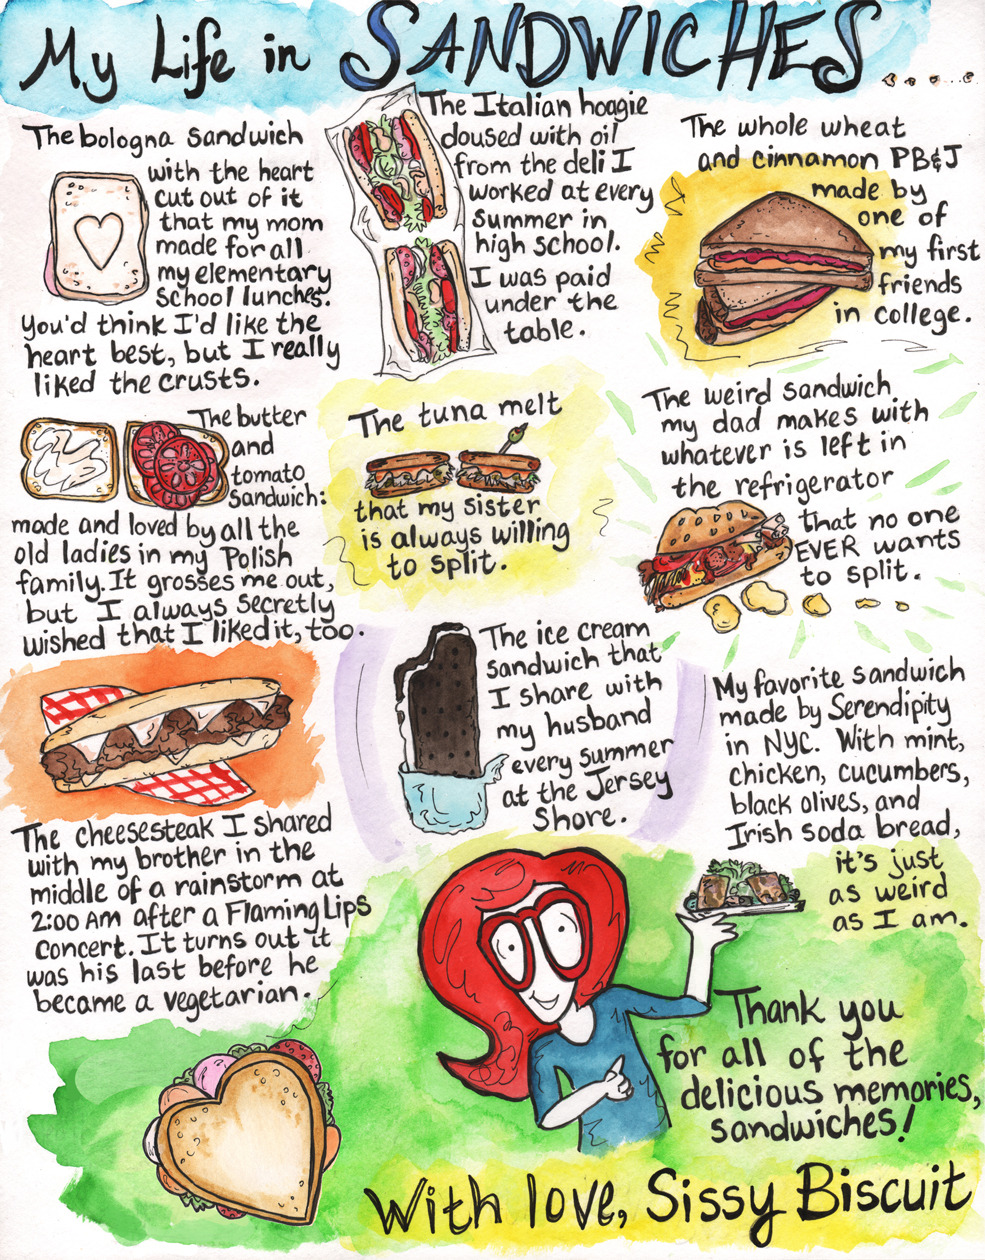 My Life in SANDWICHES.....
The bologna sandwich
with the heart
cut out of it
that my mom
made for all
my elementary
School lunches.
You'd think I'd like the
heart best, but I really
liked the crusts.
The Italian hoagie
doused with oil
from the deli I
worked at every
summer in
high school.
I was paid
under the
table.
The whole wheat
and cinnamon PB&J
made by
one of
my first
friends
in college.
The butter
and
tomato
sandwich:
made and loved by all the
old ladies in my Polish
family. It grosses me out,
but I always secretly
wished that I liked it, too.
The tuna melt
that my sister
is always willing
to split.
The weird sandwich
my dad makes with
whatever is left in
the refrigerator
that no one
EVER wants
to split.
The cheesesteak I shared
with my brother in the
middle of a rainstorm at
2:00 AM after a Flaming Lips
concert. It turns out it
was his last before he
became a vegetarian.
The ice cream
sandwich that
I share with
my husband
every summer
at the Jersey
Shore.
My favorite sandwich
made by Serendipity
in NYC. With mint,
chicken, cucumbers,
black olives, and
Irish soda bread,
it's just
as weird
as I am.
Thank you
for all of the
delicious memories,
sandwiches!
With love, Sissy Biscuit